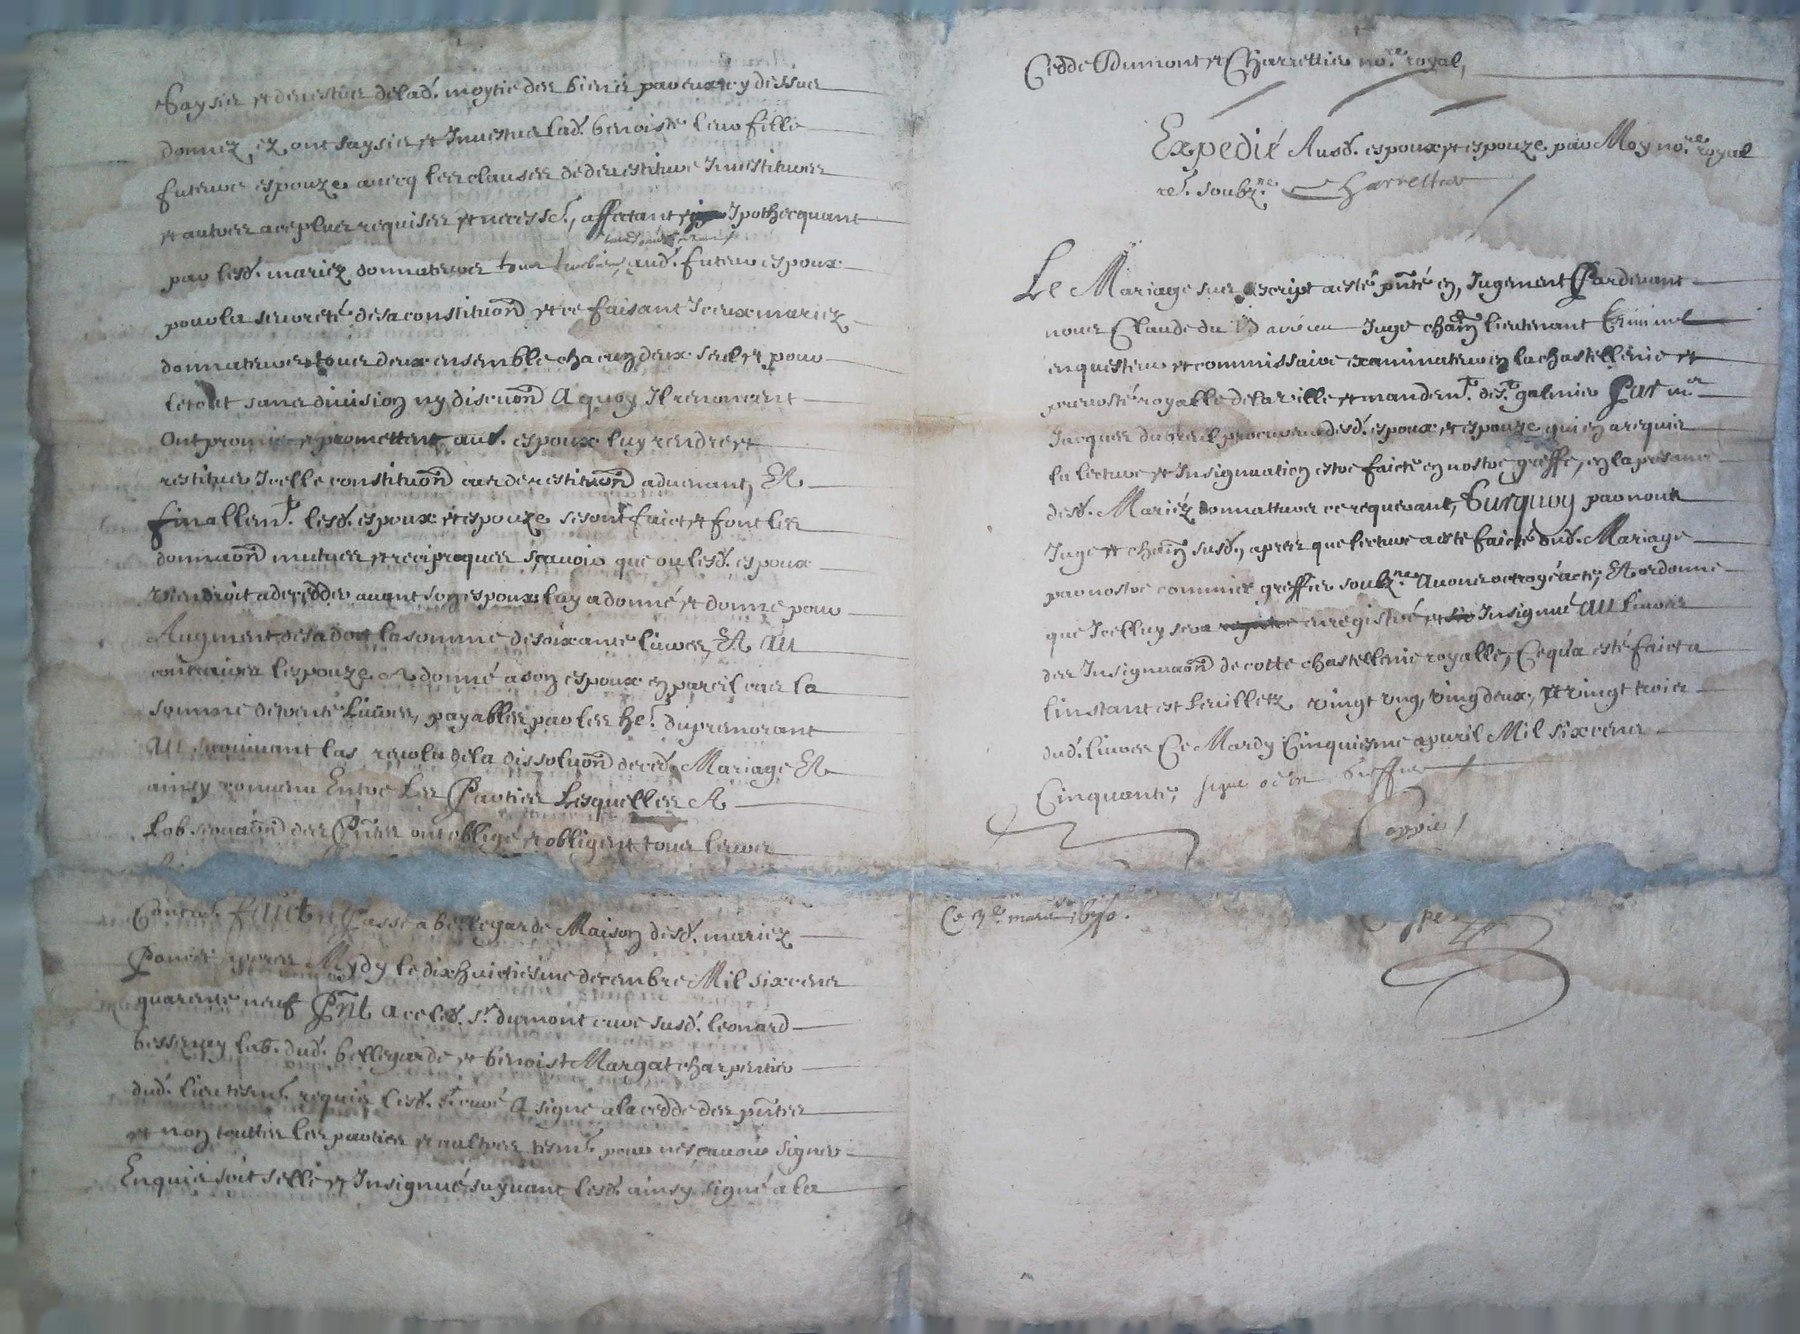 saysie et devestue de lad. moytie des biens par eux cy dessus
donnez, ez ont saysie et Investue lad. benoiste leur fille
future espouze avecq les clauses de devestitue Investitues
et autres a ce plus requises et necess.e, affectant Ipothecquant
par lesd. mariez donnateurs aud. futeur espoux
pour la seureté de sa constituōn et ce faisant Iceux mariez
donnateurs tous deux ensemble chacung deux seul et pour
le tout sans division ny discuōn A quoy Il renoncent
Ont promis et promettent aud. espoux luy rendre et
restituer Icelle constituōn cas de restituōn advenant, Et
finallemt. lesd. espoux et espouze se sont faict et font les
donnaōn mutues et reciproques sçavoir que ou lesd. espoux
viendroit a decedder avant son espouse luy a donné et donne pour
Augment de sa dot la somme de soixante livres, Et au
contraire lespouze a donné a son espoux en pareil cas la
somme de trente Livres, payables par les he.s du premorant
au survivant las revolu de la dissoluōn de ced. Mariage Et
ainsy convenu Entre Les Parties Lesquelles A
Lobservaōn des Pñtes ont obligé et obligent tous leurs
Contat. faict et Passé a bellegarde Maison desd. mariez
Poncet apres Mydy le dix huictiesme decembre Mil six cens
quarente neuf Pñt a ce led. sr. dumont curé susd. leonard
bessenay lab. dud. bellegarde et benoist Margat charpentier
dud. lieu tesm.s requis lesd. sr. curé A signé a la cedde des pñtes
et non touttes les parties et aultres tesm.s pour ne sçavoir signer
Enquis soit sellé et Insignué suyvant lesd. ainsy signé a la
Cedde Dumont et Charrettier no.re royal,
Expedié Ausd. espoux et espouze par Moy no.re royal
re.l soubz.né Charrettier
Le Mariage sus escript a esté pñté en Jugement Pardevant
nous Claude du Juge chatñ lieutenant Criminel
enquesteur et commissaire examinateur en la chastellenie et
prevosté royalle de la ville et mandemt. de st. galmier Par mr
Jacques du procureur desd. espoux et espouze qui en a requis
la lecture et Insignuation estre faicte en nostre greffe, en la presance
desd. Mariez donnatteurs ce requerant, Surquoy par nous
Juge et chatñ susd, apres que lecture a esté faicte dud. Mariage
par nostre commis greffier soubz.né Avons octroyé acte, Et ordonné
que Icelluy sera enregistré Insignué au livre
des Insignuaōn de cette chastellenie royalle, Ce qu'a esté faict a
linstant est feuilletz vingt ung, vingt deux, et vingt trois
dud. livre Ce Mardy Cinquiesme apvril Mil six cens
Cinquante,
Coppie
Ce mars 1650.